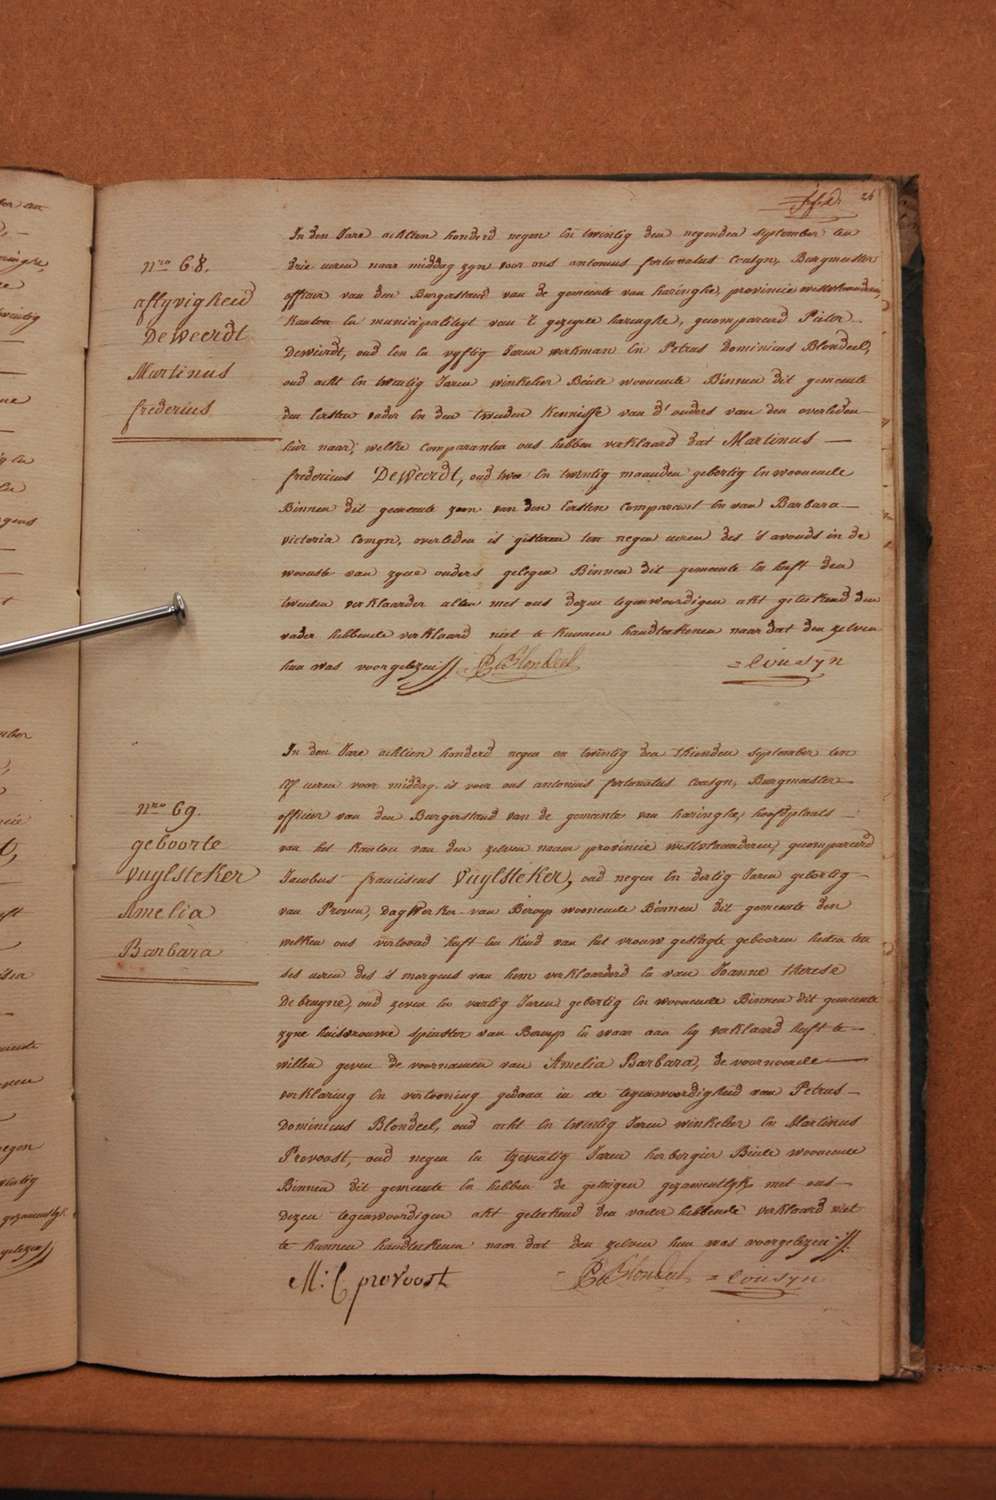 26
nro 68.
aflyvigheid
DeWeerdt
Martinus
frederius
In den Jare achtien honderd negen en twintig den negenden september ten
drie uren naar middag zyn voor ons antonius fortunatus Cousyn, Burgmeester
officier van den Burgerstand van de gemeente van haringhe, provincie westvlaanderen,
Kanton en municipaliteyt van 't gezegde haringhe, gecompareerd Pieter
Deweerdt, oud een en vyftig Jaren werkman en Petrus Dominicus Blondeel,
oud acht en twintig Jaren winkelier Beide woonende Binnen dit gemeente
den eersten vader en den tweeden Kennisse van d'ouders van den overleden
hier naar, welke comparanten ons hebben verklaard dat Martinus
fredericus DeWeerdt, oud twee en twintig maanden gebortig en woonende
Binnen dit gemeente zoon van den eersten comparant en van Barbara
victoria overleden is gisteren ten negen uren des 's avonds in de
wooste van zyne ouders gelegen Binnen dit gemeente en heeft den
tweeden verklaarder alleen met ons dezen tegenwoordigen akt geteekend den
vader hebbende verklaard niet te kunnen handteekenen naar dat den zelven
hun was voorgelezen
P D Blondeel = Cousyn
nro 69.
geboorte
Vuylsteker
Amelia
Barbara
In den Jare achtien honderd negen en twintig den thienden september ten
uren voor middag is voor ons antonius fortunatus Cousyn, Burgmeester
officier van den Burgerstand van de gemeente van haringhe, hoofdplaats
van het kanton van den zelven naam provincie westvlaanderen, gecompareerd
Jacobus franciscus Vuylsteker, oud negen en dertig Jaren gebortig
van Proven, dagwerker van Beroep woonende Binnen dit gemeente den
welken ons vertoond heeft een kind van het vrouw geslagte geboren heden ten
ses uren des 's morgens van hem verklaarderd en van Joanne therese
debruyne, oud zeven en vertig Jaren gebortig en woonende Binnen dit gemeente
zyne huisvrouwe spinster van Beroep en waar aan hy verklaard heeft te
willen geven de voornamen van Amelia Barbara, de voornoemde
verklaring en vertooning gedaan in de tegenwoordigheid van Petrus
Dominicus Blondeel, oud acht en twintig Jaren winkelier en Martinus
Provoost, oud negen en tzeventig Jaren herbergier Beide woonende
Binnen dit gemeente en hebben de getuigen gezamentlyk met ons
dezen tegenwoordigen akt geteekend den vader hebbende verklaard niet
te kunnen handteekenen naar dat den zelven hun was voorgelezen
M: C provoost P D Blondeel = Cousyn